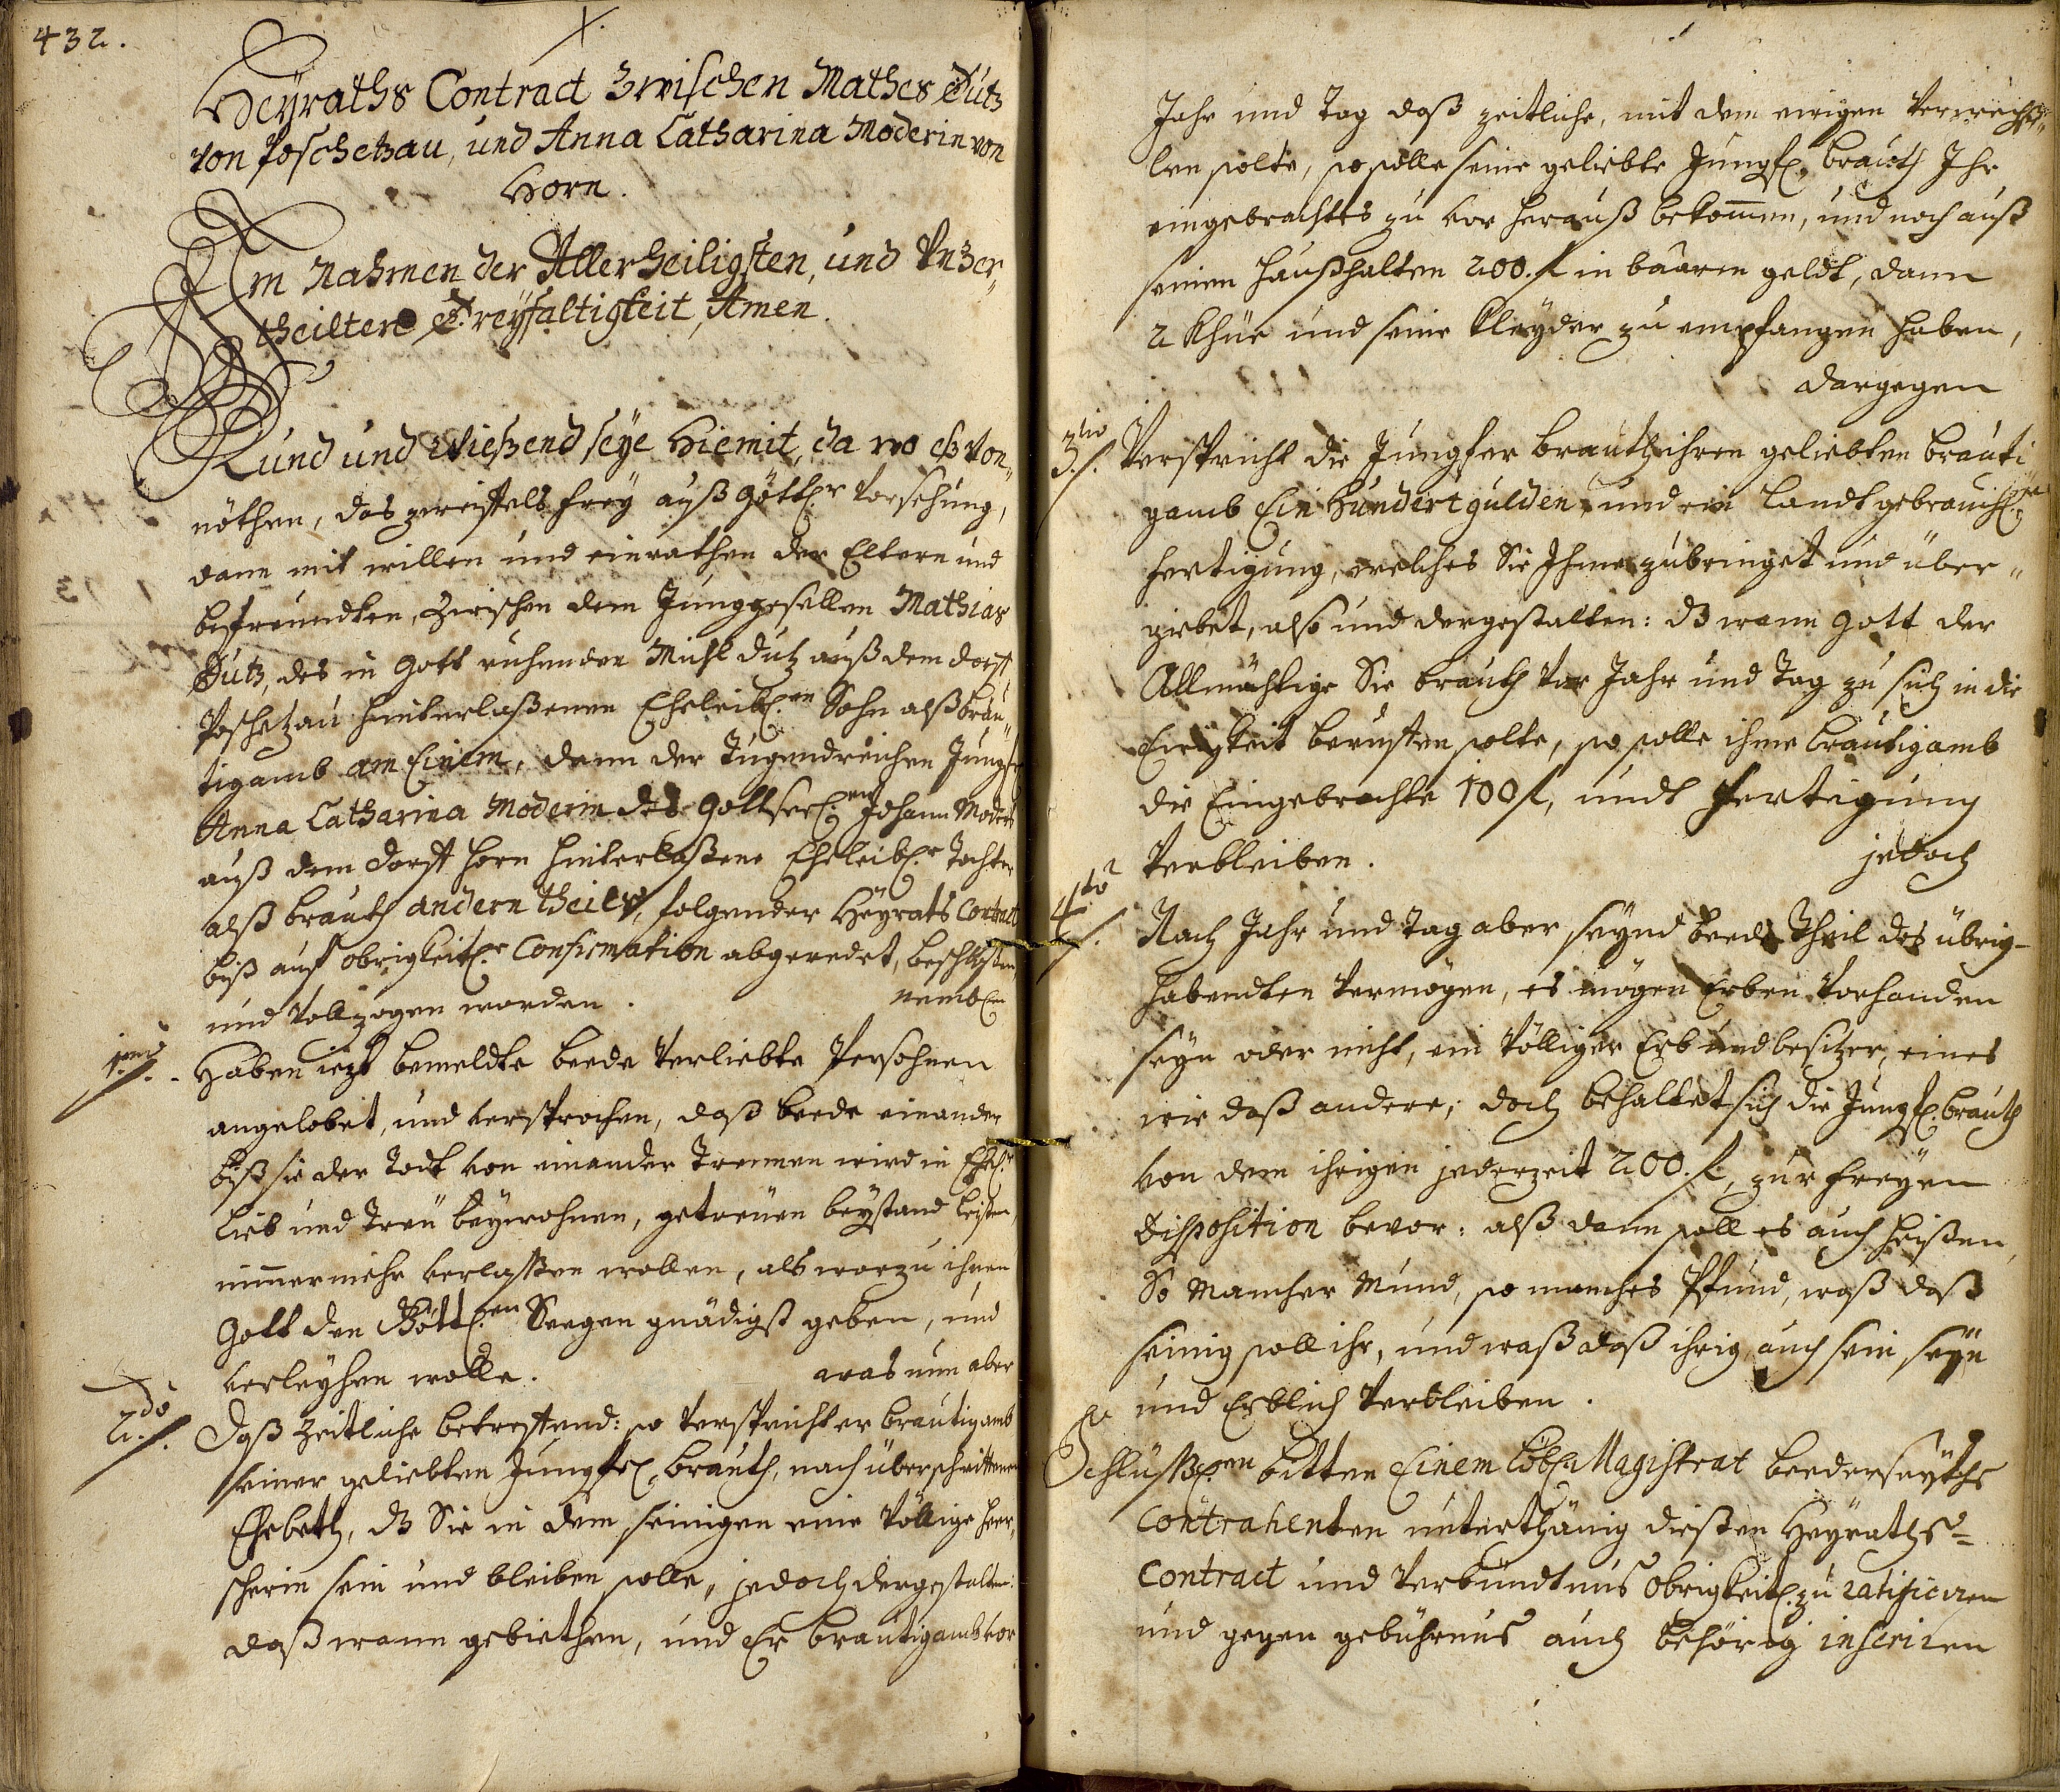 432.
Heÿraths Contract Zwischen Mathes Dutz
von Poschetzau, und Anna Catharina Moderin von
Horn.
Im Nahmen der Allerheiligsten, und Unzer„
theilten Dreÿfaltigkeit, Amen.
Kund und Wießend seÿe Hiemit, da wo eß von„
nöthen, das zweiffels freÿ auß Göttl:r Vorsehung,
dann mit willen und einrathen der Eltern und
befreundten, Zwischen dem Junggesellen Mathias
Dutz, des in Gott ruhenden Michl Dutz auß dem dorff
Poschetzau hinterlaßenen Eheleibl:en Sohn alß bräu„
tigamb am Einem, dann der Tugendreichen Jungfr
Anna Catharina Moderin des Gottseel:en Johann Moder
auß dem dorff Horn hinterlaßene Eheleibl:e Tochter
alß brauth andern theils, folgender Heÿrats Contract
biß auf obrigkeitl:e Confirmation abgeredet, beschloßen
und vollzogen worden. nembl:
1mo Haben iezt bemeldte beede verliebte Persohnen
angelobet, und versprochen, daß beede einander
biß sie der Todt von einander Trennen wird in Ehel:r
lieb und Treu beÿwohnen, getreuen beÿstand leisten,
nimmermehr verlaßen wollen, als worzu ihnen
Gott den Göttl:en Seegen gnädigst geben, und
verleÿhen wolle. was nun aber
2do Daß Zeitliche betreffend: so verspricht er bräutigamb
seiner geliebten Jungfr: brauth, nach überschrittenen
Ehebeth, dz Sie in dem seinigen eine völlige herr„
scherin sein und bleiben solle, jedoch dergestalten:
daß wann gebiethen, und Er bräutigamb vor
Jahr und Tag daß zeitliche, mit dem ewigen verwechß„
len solte, so solle seine geliebte Jungf: brauth Ihr
eingebrachtes zu vor herauß bekommen, und noch auß
seinen haußhalten 200. f in baaren geldt, dann
2 Khüe und seine Kleÿder zu empfangen haben,
dargegen
3tio Verspricht die Jungfer brauth ihren geliebten bräuti
gamb Ein Hundert gulden, und ein Landtgebräuchl:e
fertigung, welches Sie Ihme zubringet und über„
giebet, also und dergestalten: dz wann Gott der
Allmächtige Sie brauth vor Jahr und Tag zu sich in die
Ewigkeit beruffen solte, so solle ihme bräutigamb
die Eingebrachte 100 f, undt fertigung
verbleiben. jedoch
4to Nach Jahr und Tag aber seÿnd beede Theil des übrig-
habendten vermögen, es mögen Erben vorhanden
seÿn oder nicht, ein völliger Erb und besitzer, eines
wie daß andere; doch behaltet sich die Jungf: brauth
von dem ihrigen jederzeit 200. f, zur freÿen
Disposition bevor: alß dann soll es auch heißen,
So mancher Mund, so manches Pfund, waß daß
seinig soll ihr, und waß daß ihrig auch sein seÿn
und Erblich verbleiben.
Schlüßl:en bitten Einem Löbl: Magistrat beederseÿths
Contrahenten unterthänig dießen Heÿraths=
Contract und verbündtnus obrigkeitl: zu ratificiren
und gegen gebührnus auch behörig inseriren